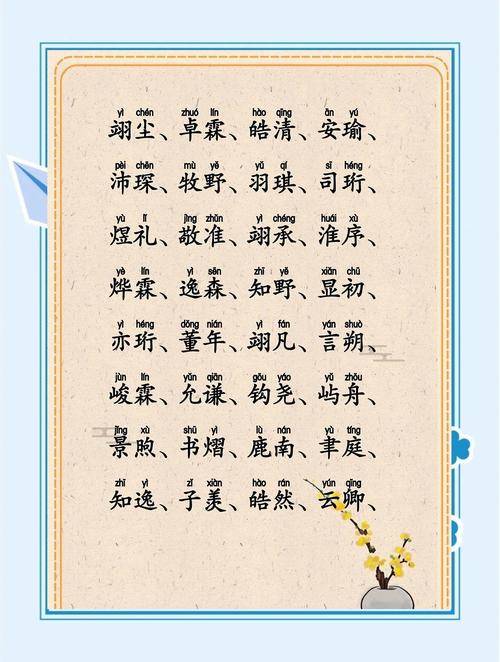 yì chén zhuó lín hào qīng ān yú
翊尘、卓霖、皓清、安瑜、
pèi chēn mù yě yǔ qí sī héng
沛琛、牧野、羽琪、司珩、
yù lǐ jìng zhǔn yì chéng huái xù
煜礼、敬准、翊承、淮序、
yè lín yì sēn zhī yě xiǎn chū
烨霖、逸森、知野、显初、
yì héng dǒng nián yì fán yán shuò
亦珩、董年、翊凡、言朔、
jùn lín yǔn qiān gōu yáo yǔ zhōu
峻霖、允谦、钩尧、屿舟、
jǐng xù shū yì lù nán yù tíng
景煦、书熠、鹿南、聿庭、
zhī yì zǐ xiàn hào rán yún qīng
知逸、子羡、皓然、云卿、